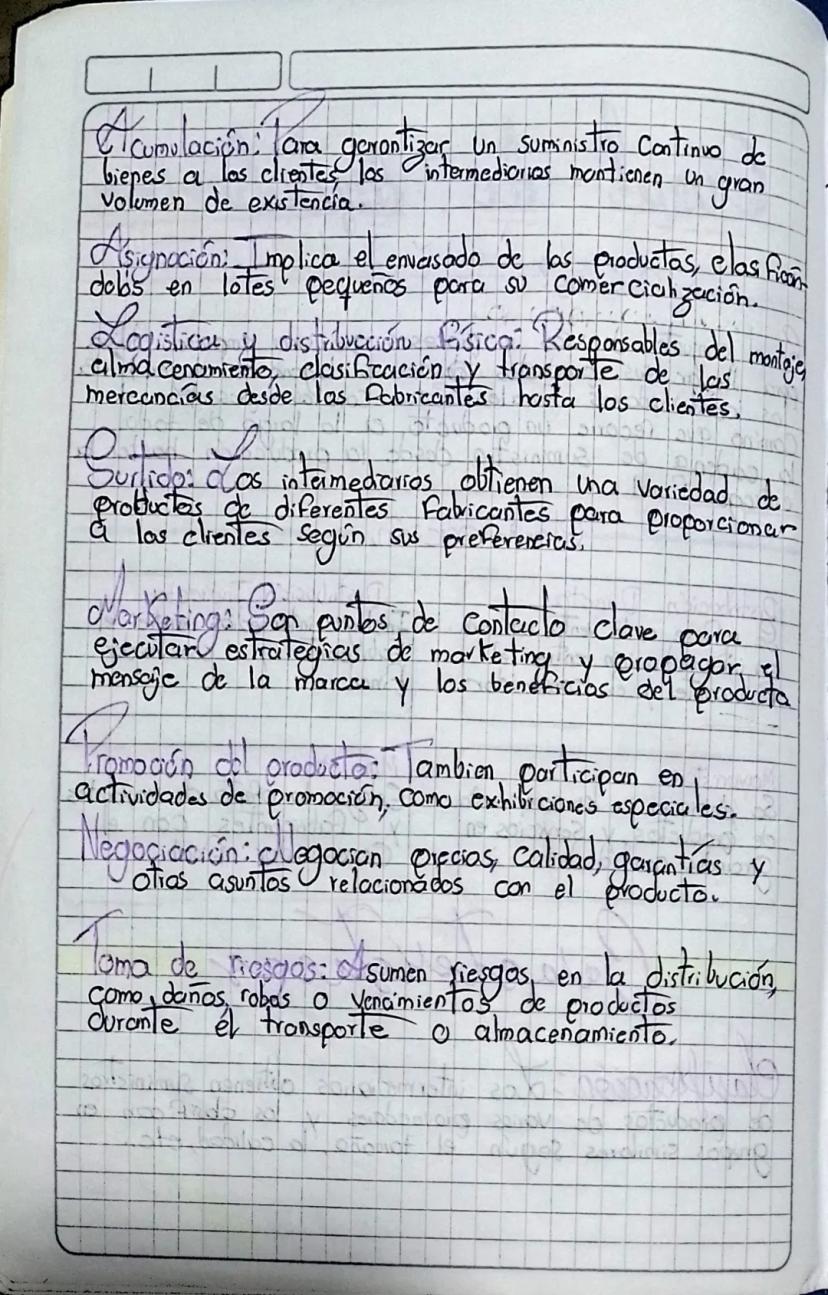 Acumulación: Para garantizar un suministro continuo de
bienes a los clientes los intermediarios mantienen un gran
volumen de existencia.
Asignación: Implica el envasado de los productos, clasifican-
dolos en lotes pequeños para su comercialización.
Logística y distribucción física: Responsables del montaje,
almacenamiento, clasificación y transporte de las
mercancías desde los fabricantes hasta los clientes.
Surtido: Los intermediarios obtienen una variedad de
productos de diferentes fabricantes para proporcionar
a los clientes según sus preferencias.
Marketing: Son puntos de contacto clave para
ejecutar estrategias de marketing y propagar el
mensaje de la marca y los beneficios del producto
Promoción del producto: Tambien participan en
actividades de promoción, como exhibiciones especiales.
Negociación: Negocian precios, calidad, garantías y
otros asuntos relacionados con el producto.
Toma de riesgos: Asumen riesgos en la distribución,
como daños, robos o vencimientos de productos
durante el transporte o almacenamiento.